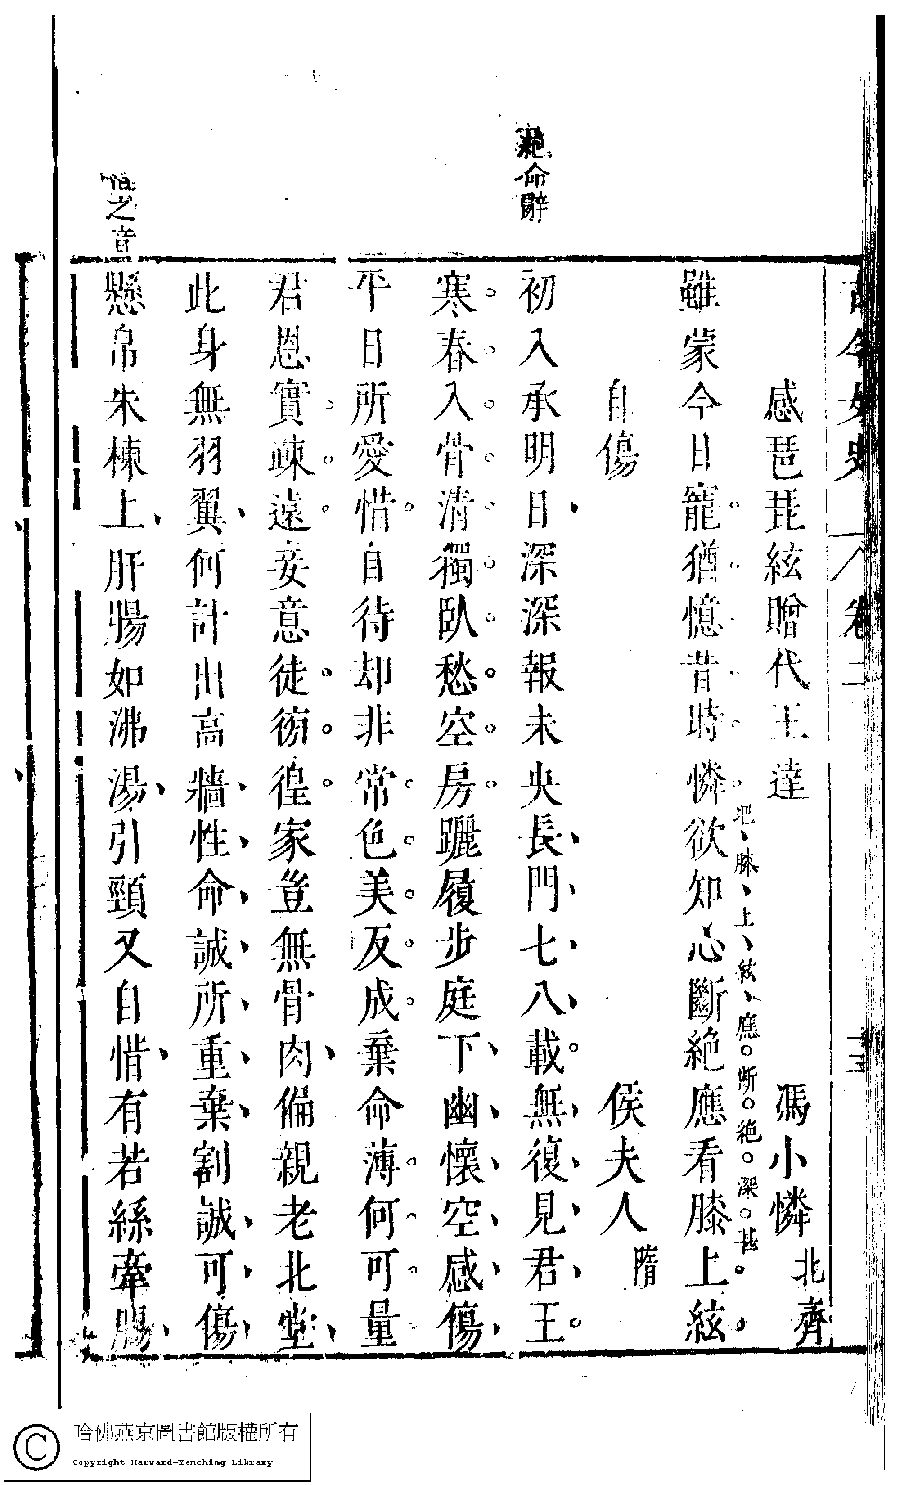 古今女史 卷二 十三
感琵琶絃贈代王達 馮小憐 北齊
雖蒙今日寵猶憶昔時憐欲知心斷絶應看膝上絃
把膝上絃應斷絶深甚
自傷 侯夫人 隋
絕命辭
初入承明日深深報未央長門七八載無復見君王
寒春入骨清獨臥愁空房躧履步庭下幽懷空感傷
平日所愛惜自待却非常色美反成棄命薄何可量
君恩實疎遠妾意徒徬徨家豈無骨肉偏親老北堂
此身無羽翼何計出高牆性命誠所重棄割誠可傷
之意
懸帛朱棟上肝腸如沸湯引頸又自惜有若絲牽腸
哈佛燕京圖書館版權所有
Copyright Harvard-Yenching Library